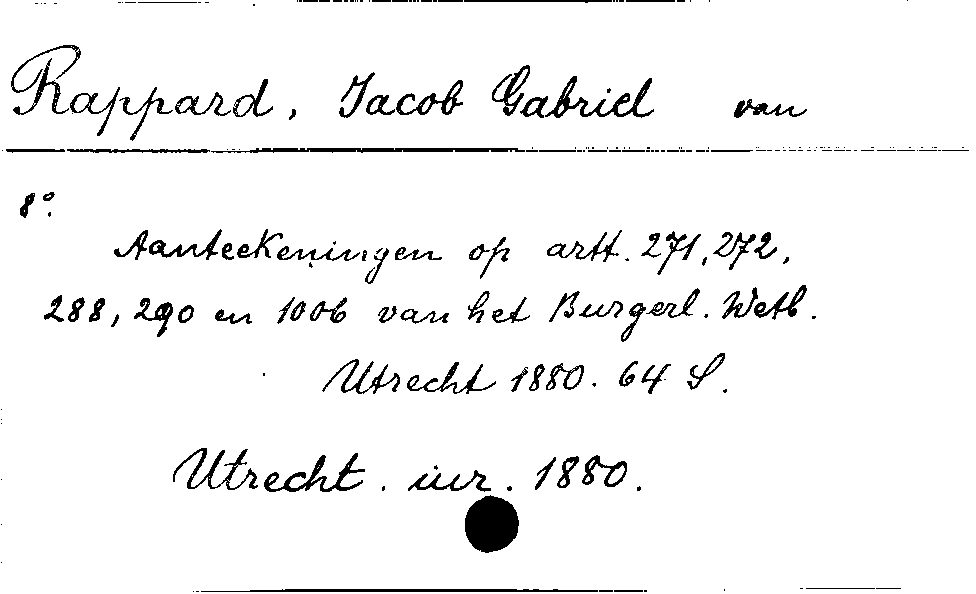 Rappard, Jacob Gabriel van
8°.
Aanteekeningen op artt. 271, 272,
288, 290 en 1006 van het Burgerl. Wetb.
Utrecht 1880. 64 S.
Utrecht. iur. 1880.